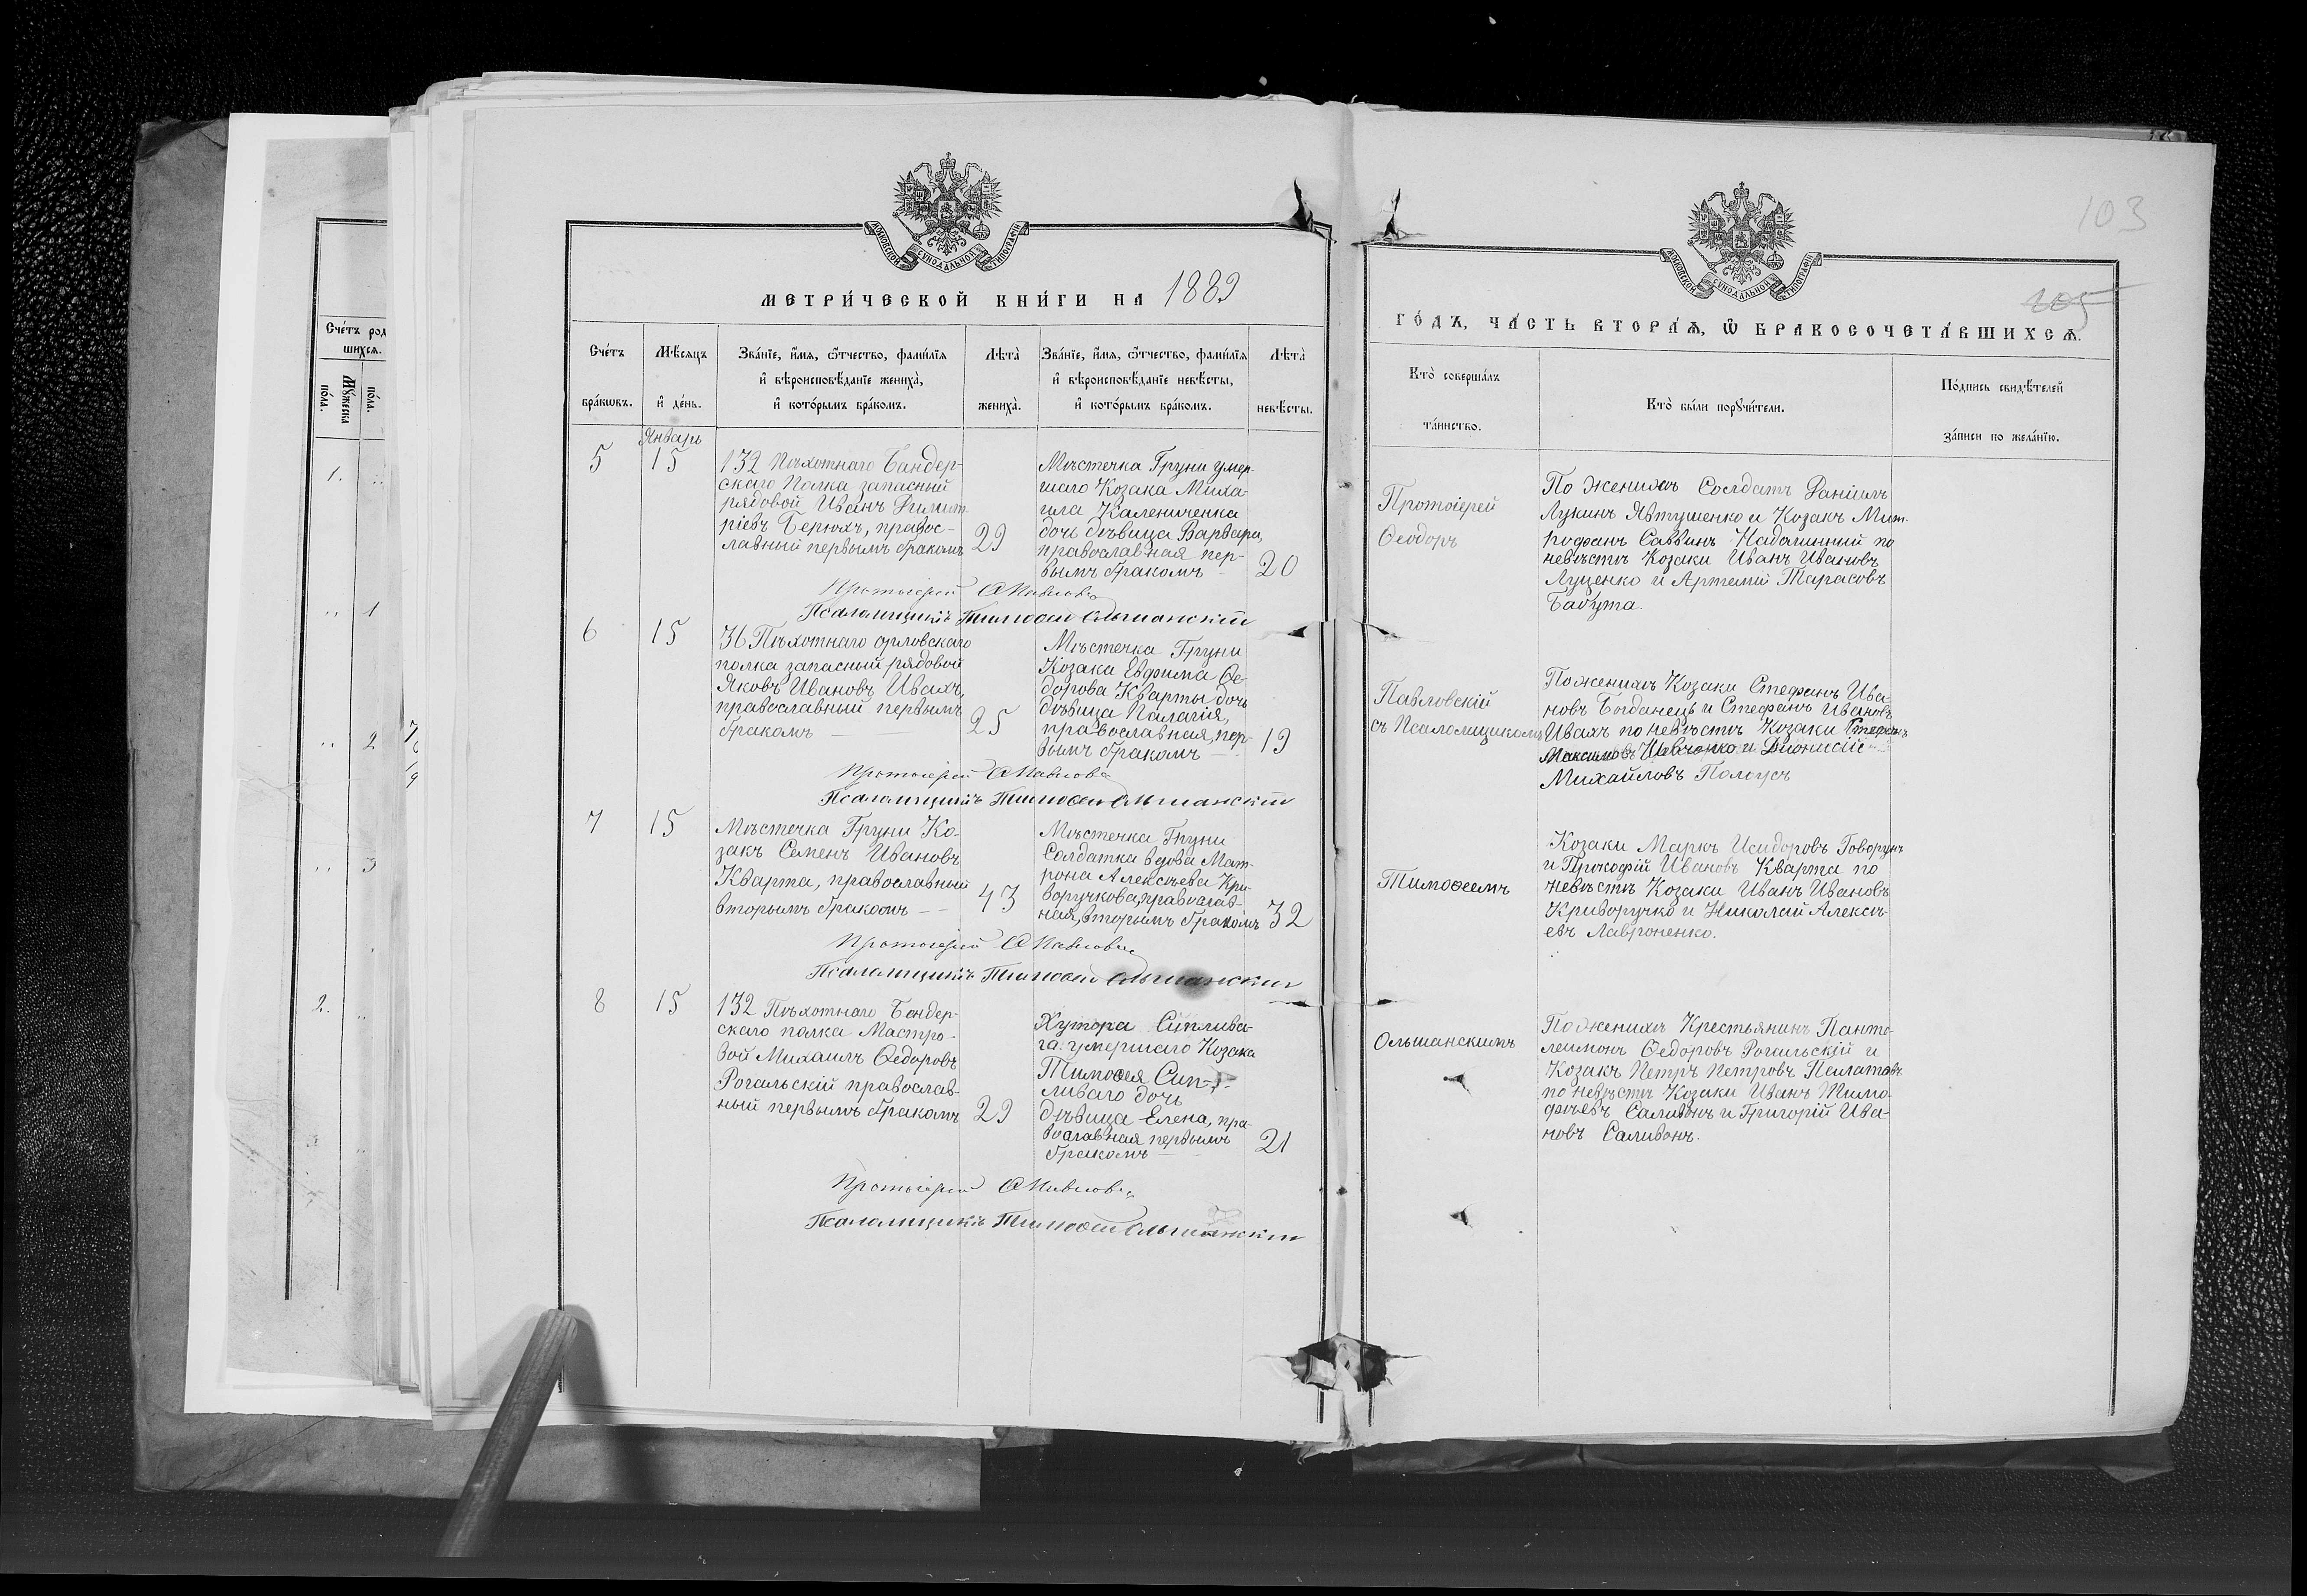 МОСКОВСКОЙ СѴНОДАЛЬНОЙ ТИПОГРАФІИ
МЕТРИ́ЧЕСКОЙ КНИ́ГИ НА 1889
Сче́тъ бра́кωвъ.
Мѣ́сяцъ и҆ де́нь.
Зва́нїе, и҆́мѧ, ѻ҆́тчество, фамѝлїѧ
и҆ вѣроисповѣ́данїе жениха̀,
и҆ кото́рымъ бра́комъ.
Лѣта̀ жениха̀.
Зва́нїе, и҆́мѧ, ѻ҆́тчество, фамѝлїѧ
и҆ вѣроисповѣ́данїе невѣ́сты,
и҆ кото́рымъ бра́комъ.
Лѣта̀ невѣ́сты.
Январь
5
15
132 Пѣхотнаго Бендер-
скаго Полка запасный
рядовой Иванъ Димит
ріевъ Берюхъ, правос-
лавный первымъ бракомъ
29
Мѣстечка Груни умер-
шаго Козака Миха-
ила Калениченка
дочь дѣвица Варвара,
православная пер-
вымъ бракомъ
20
Протоіерей Ѳ Павловс
Псаломщикъ Тимоѳей Ольшанскій
6
15
36 Пѣхотнаго Орловскаго
полка запасный рядовой
Яковъ Ивановъ Ивахъ,
православный первымъ
бракомъ
25
Мѣстечка Груни
Козака Евфима Ѳе-
дорова Кварты дочь
дѣвица Палагія,
православная, пер-
вымъ бракомъ
19
Протоіерей Ѳ Павловс
Псаломщикъ Тимоѳей Ольшанскій
7
15
Мѣстечка Груни Ко-
закъ Семенъ Ивановъ
Кварта, православный
вторымъ бракомъ
43
Мѣстечка Груни
Солдатка вдова Мат-
рона Алексѣева Кри-
воручкова, православ-
ная, вторымъ бракомъ
32
Протоіерей Ѳ Павловс
Псаломщикъ Тимоѳей Ольшанскій
8
15
132 Пѣхотнаго Бендер-
скаго полка Мастро-
вой Михаилъ Ѳедоровъ
Рогальскій православ-
ный первымъ бракомъ
29
Хутора Сиплива-
го умершаго Козака
Тимоѳея Сип-
ливаго дочь
дѣвица Елена, пра-
вославная первымъ
бракомъ
21
Протоіерей Ѳ Павловс
Псаломщикъ Тимоѳей Ольшанскій
103
105
МОСКОВСКОЙ СѴНОДАЛЬНОЙ ТИПОГРАФІИ
ГО́ДЪ, ЧА́СТЬ ВТОРА́Ѧ, Ѽ БРАКОСОЧЕТА́ВШИХСѦ.
Кто̀ соверша́лъ
та́инство.
Кто̀ бы́ли порꙋчи́тели.
По́дпись свидѣ́телей
за́писи по жела́нїю.
Протоіерей
Ѳеодоръ
Павловскій
съ Псаломщикомъ
Тимоѳеемъ
Ольшанскимъ
По женихѣ Солдатъ Даніилъ
Лукинъ Явтушенко и Козакъ Мит-
рофанъ Саввинъ Надалинный по
невѣстѣ Козаки Иванъ Ивановъ
Луценко и Артемій Тарасовъ
Бабута.
По женихѣ Козаки Стефанъ Ива-
новъ Богданецъ и Стефанъ Ивановъ
Ивахъ по невѣстѣ Козаки Стефанъ
Максимовъ Шевченко и Діонисій
Михайловъ Полоусъ
Козаки Маркъ Исидоровъ Говорунъ
и Прокофій Ивановъ Кварта по
невѣстѣ Козаки Иванъ Ивановъ
Криворучко и Николай Алексѣ-
евъ Лавроненко.
По женихѣ Крестьянинъ Панте-
леимонъ Ѳедоровъ Рогальскій и
Козакъ Петръ Петровъ Пилатовъ
по невѣстѣ Козаки Иванъ Тимо-
фѣевъ Саливонъ и Григорій Ива-
новъ Саливонъ.
Сче́тъ род
шихсѧ.
Мꙋ́жеска
по́ла.
по́ла.
1.
1
2
3
2.